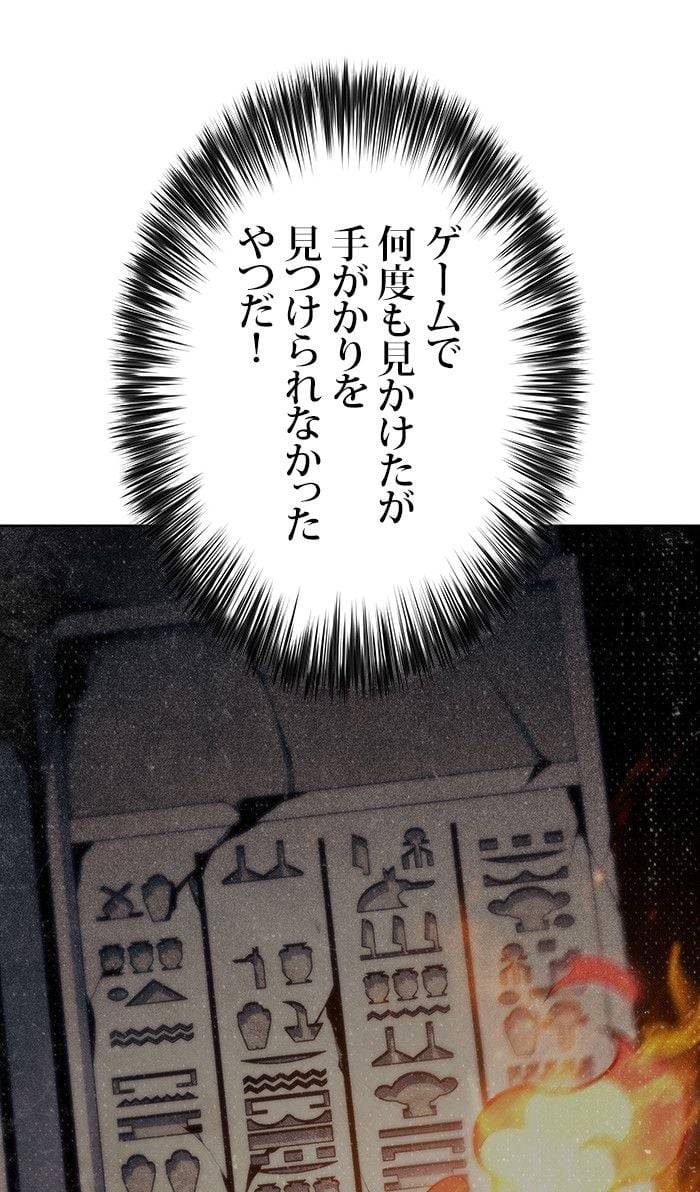 ゲームで
何度も見かけたが
手がかりを
見つけられなかった
やつだ！